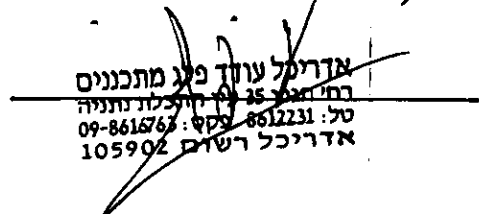 אדריכל עודד פלג מתכננים
רח' 35 נתניה
טל: 8612231 פקס: 09-8616763
אדריכל רשום 105902